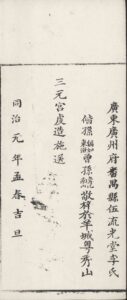 廣東廣州府番禺縣伍流光堂李氏
偕孫 曾孫 敬梓於羊城粤秀山
三元宮虔造施送
同治元年孟春吉旦